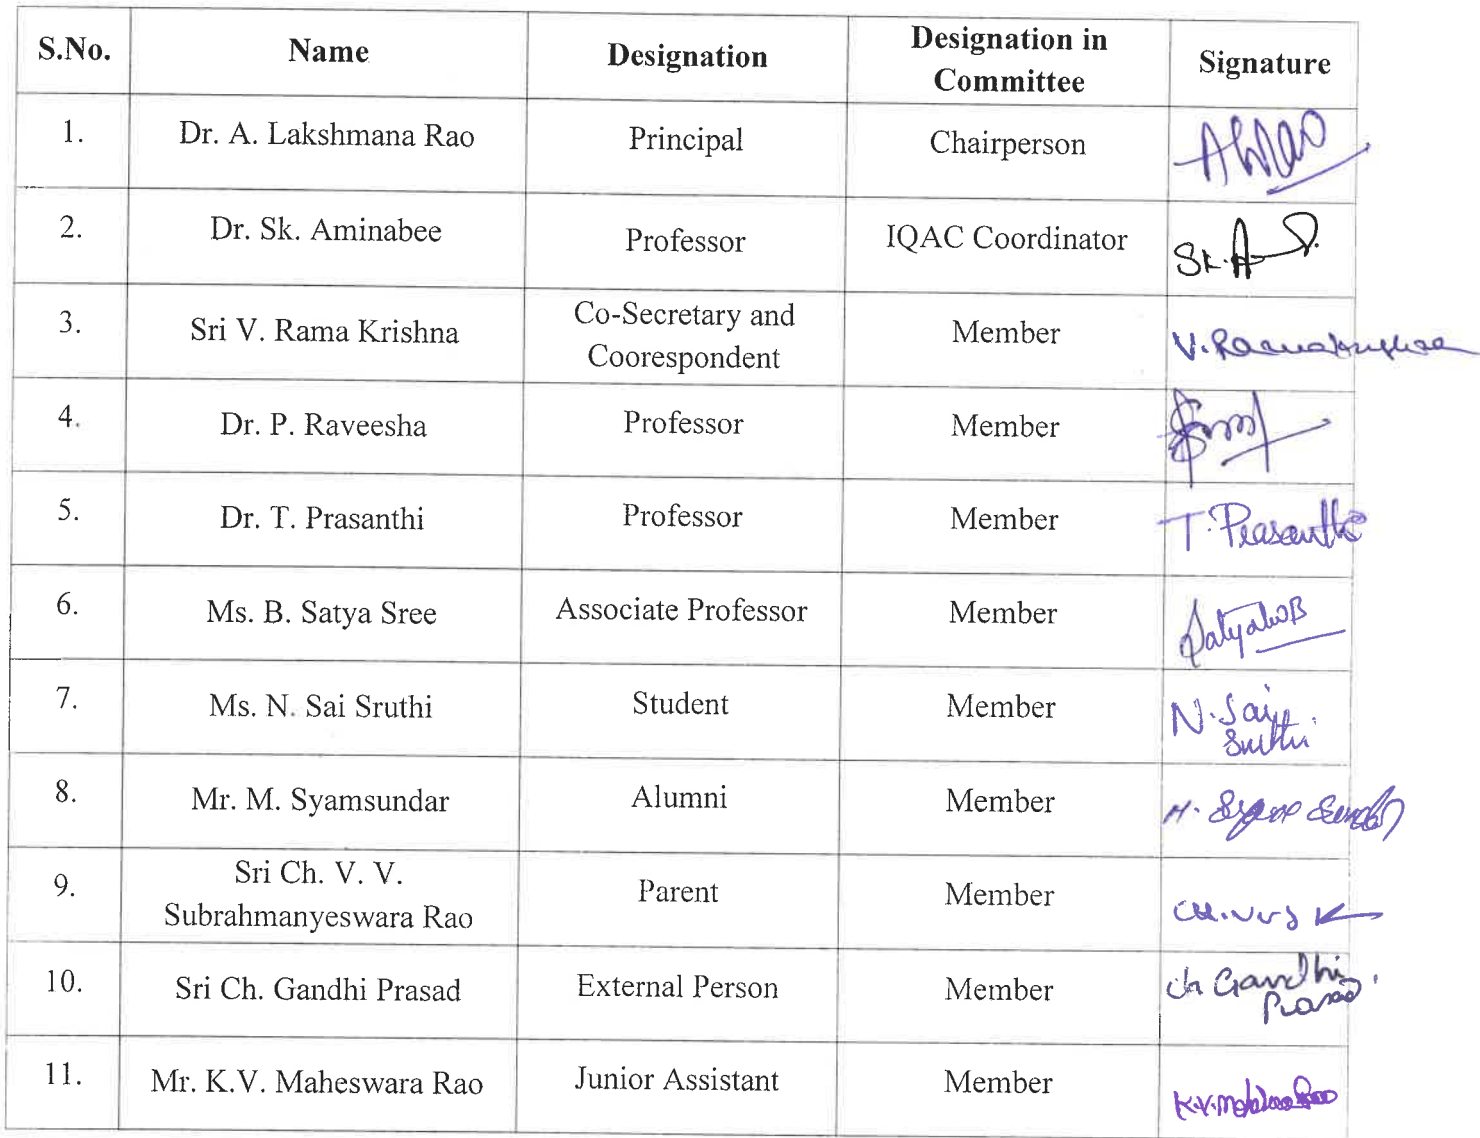 S.No. Name Designation Designation in Committee Signature
1. Dr. A. Lakshmana Rao Principal Chairperson
2. Dr. Sk. Aminabee Professor IQAC Coordinator
3. Sri V. Rama Krishna Co-Secretary and Coorespondent Member V. Ramakrishna
4. Dr. P. Raveesha Professor Member
5. Dr. T. Prasanthi Professor Member T. Prasanthi
6. Ms. B. Satya Sree Associate Professor Member
7. Ms. N. Sai Sruthi Student Member N. Sai Sruthi
8. Mr. M. Syamsundar Alumni Member M. Syam Sundar
9. Sri Ch. V. V. Subrahmanyeswara Rao Parent Member
10. Sri Ch. Gandhi Prasad External Person Member Ch Gandhi Prasad
11. Mr. K.V. Maheswara Rao Junior Assistant Member